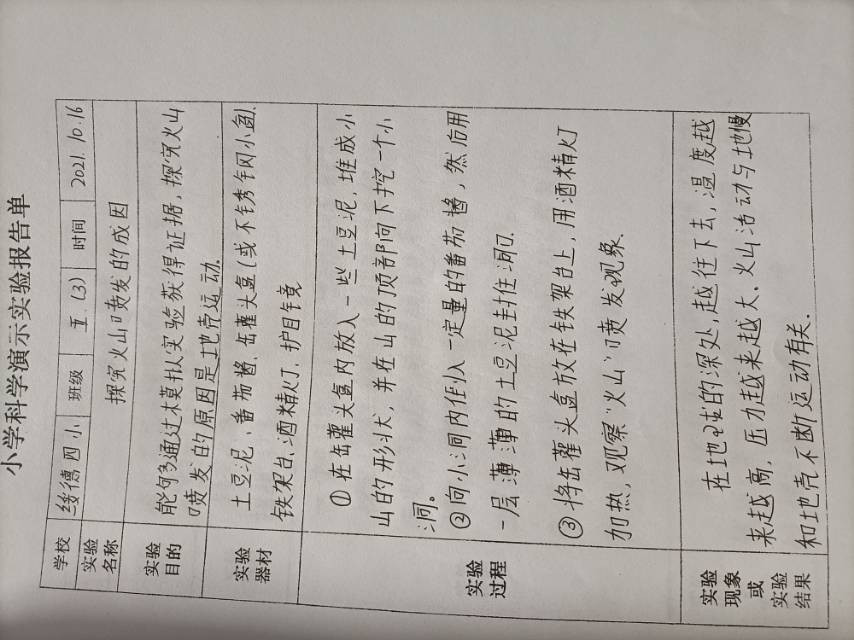 小学科学演示实验报告单
学校 绥德四小 班级 五(3) 时间 2021.10.16
实验名称 探究火山喷发的成因
实验目的 能够通过模拟实验获得证据,探究火山
喷发的原因是地壳运动.
实验器材 土豆泥、番茄酱、缶藿头盒(或不锈钢小盆).
铁架台、酒精灯、护目镜
实验过程 ①在缶藿头盒内放入一些土豆泥,堆成小
山的形状,并在山的顶部向下挖一个小
洞。
②向小洞内倒入一定量的番茄酱,然后用
一层薄薄的土豆泥封住洞口.
③将缶藿头盒放在铁架台上,用酒精灯
加热,观察“火山”喷发现象.
实验现象或实验结果 在地球的深处,越往下去,温度越
来越高,压力越来越大、火山活动与地慢
和地壳不断运动有关.